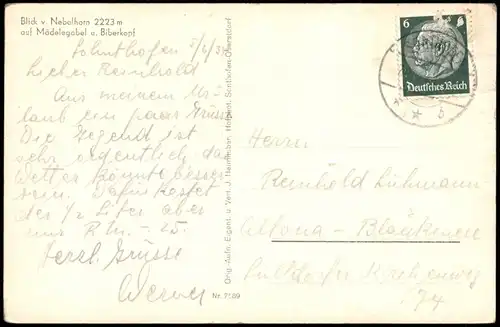 Blick v. Nebelhorn 2223 m
auf Mädelegabel u. Biberkopf
Sohnthofen 5/6/
Lieber Reinhold
Aus meinem Ur-
laub ein paar Grüsse
Die Gegend ist
sehr ordentlich, das
Wetter könnte besser
sein. Dafür kostet
der 1/2 Liter aber
nur Rm -.25.
Herzl. Grüsse
Werner
Orig.-Aufn. Eigent. u. Verl. J. Heimhuber, Hofphot. Sonthofen-Oberstdorf
Nr. 7189
6
Deutsches Reich
b
Herrn
Reinhold Lühmann
Altona - Blankenese
Sülldorfer Kirchenweg
174